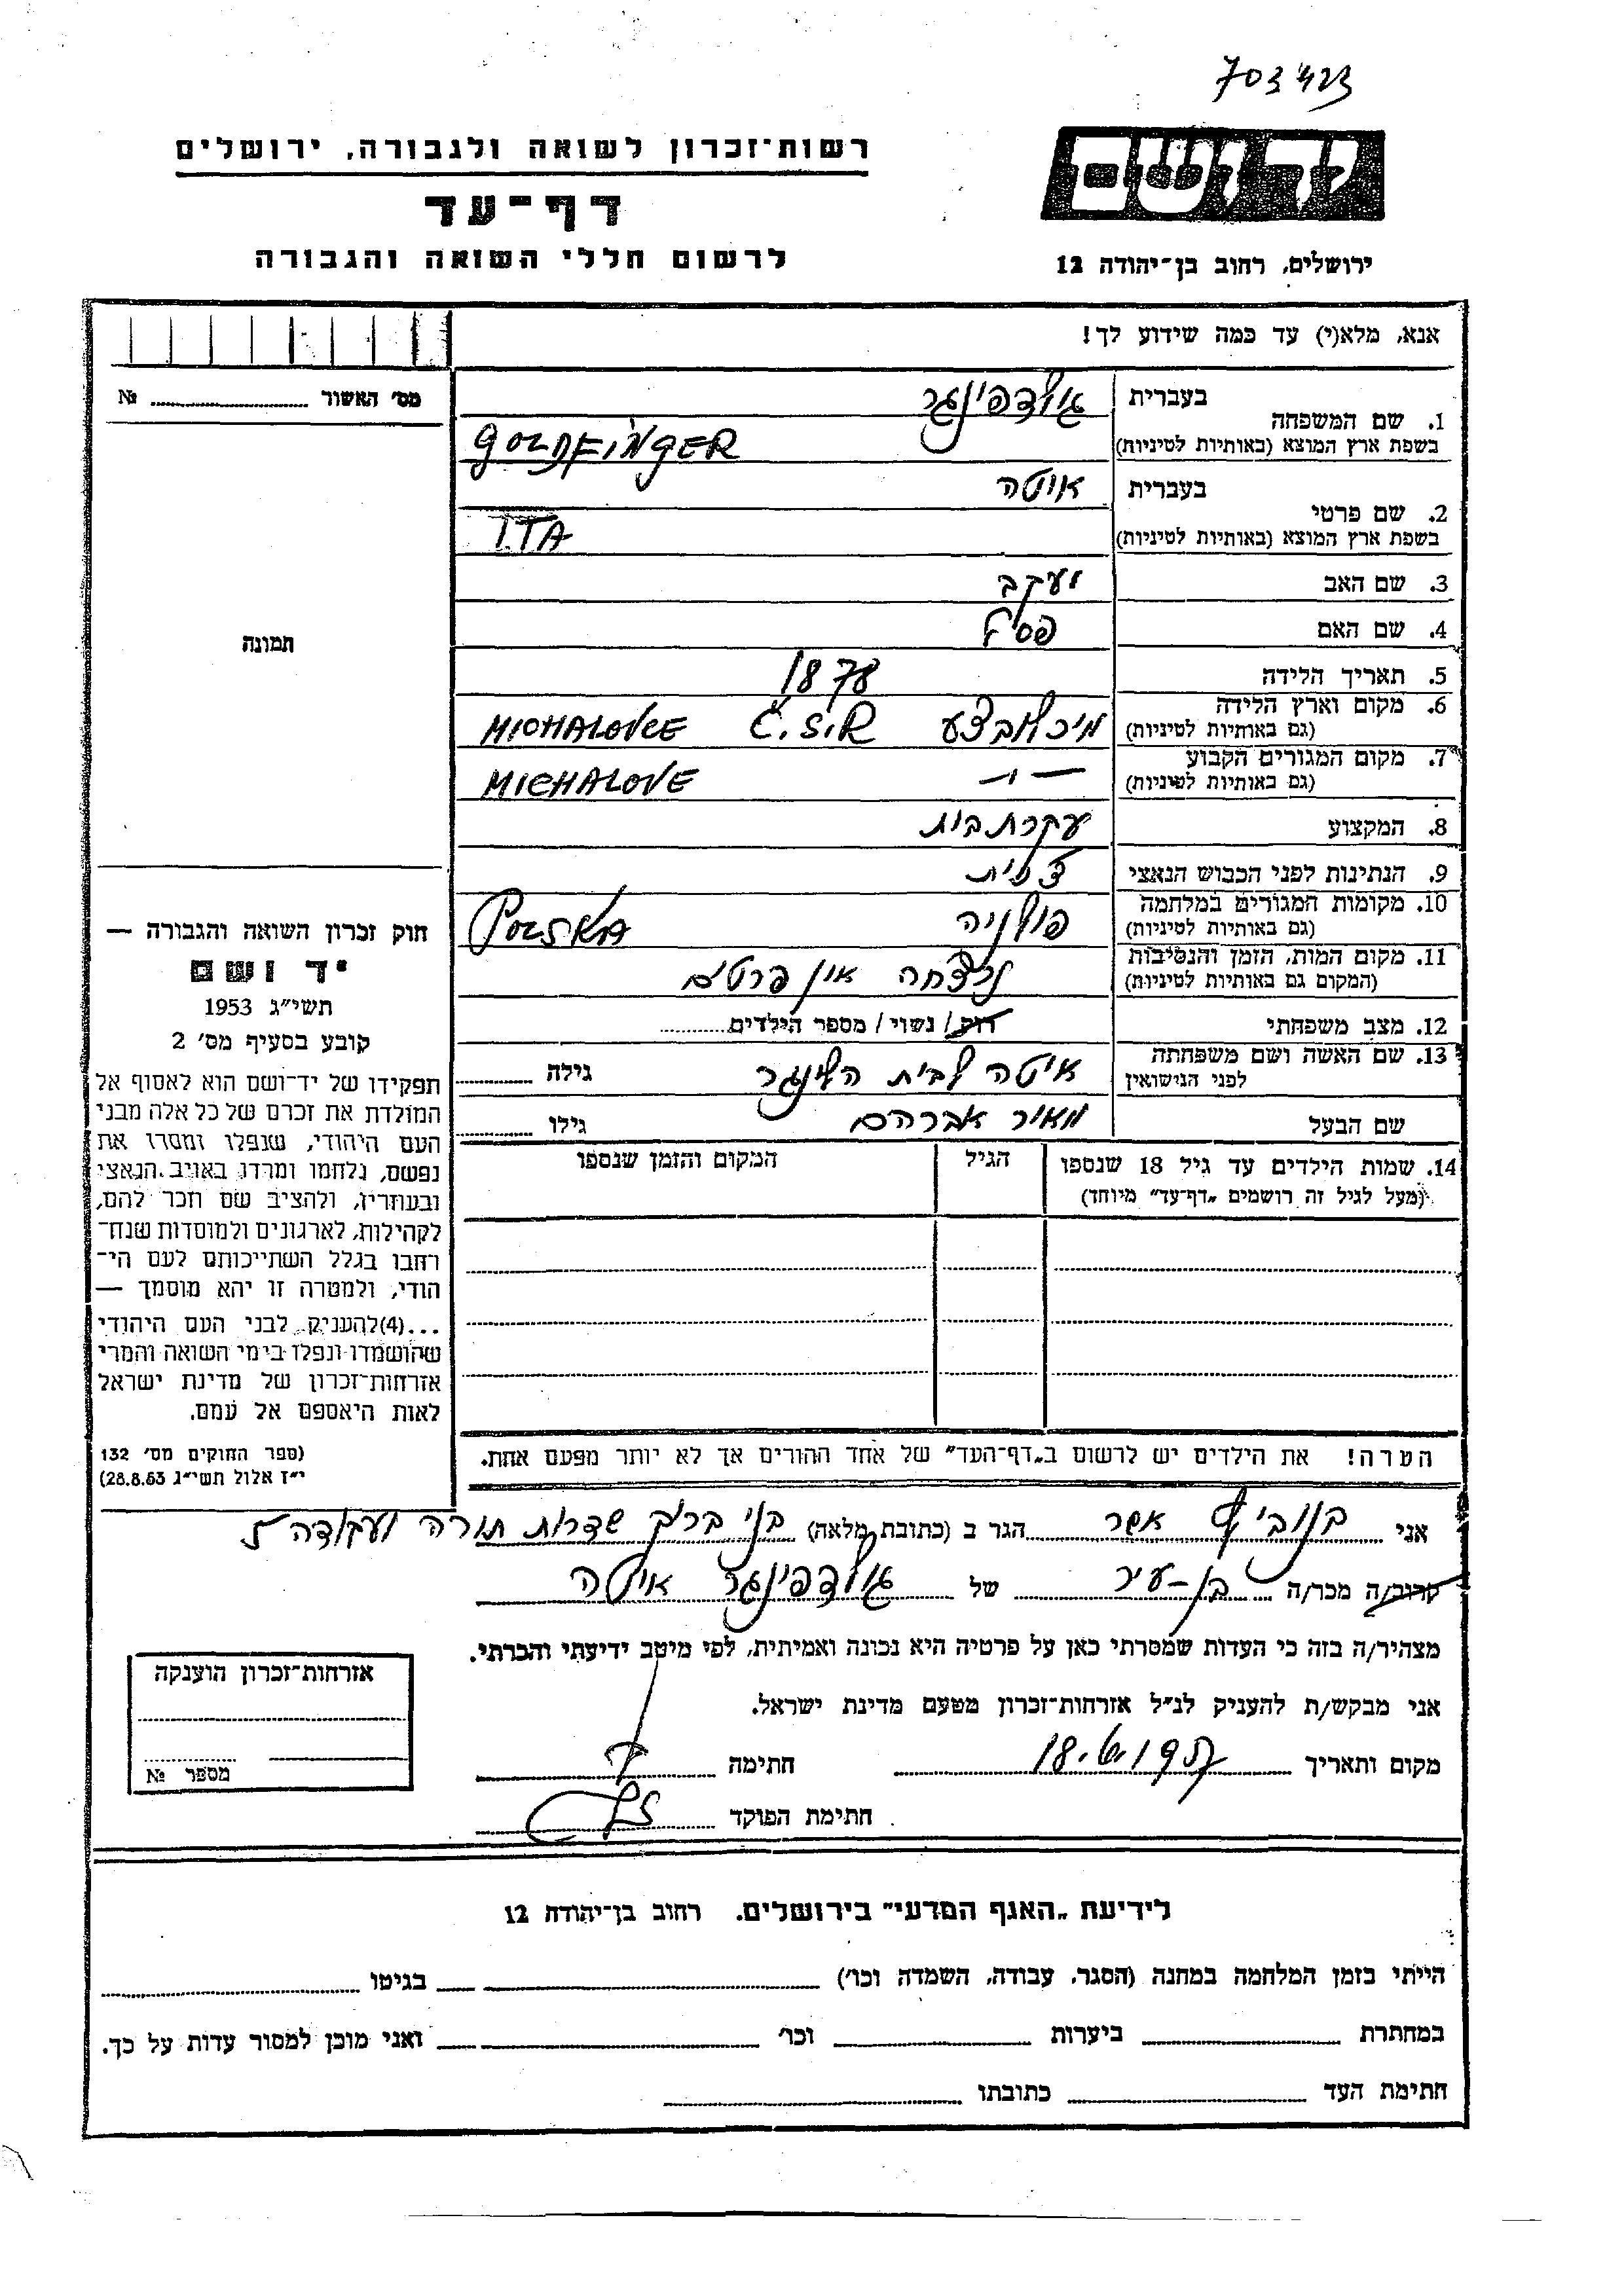 703423
רשות־זכרון לשואה ולגבורה, ירושלים
ידושם
דף־עד
לרשום חללי השואה והגבורה
ירושלים, רחוב בן־יהודה 12
אנא, מלא(י) עד כמה שידוע לך!
מס׳ האשור № ............
1. שם המשפחה בעברית גולדפינגר
בשפת ארץ המוצא (באותיות לטיניות) GOLDFINGER
2. שם פרטי בעברית איטה
בשפת ארץ המוצא (באותיות לטיניות) ITA
3. שם האב יעקב
4. שם האם
תמונה
5. תאריך הלידה 1878
6. מקום וארץ הלידה
(גם באותיות לטיניות) מיכלובצע Č.S.R MICHALOVCE
7. מקום המגורים הקבוע
(גם באותיות לטיניות) — וו — MICHALOVE
8. המקצוע עקרת בית
9. הנתינות לפני הכבוש הנאצי צ׳כית
10. מקומות המגורים במלחמה
(גם באותיות לטיניות) פולניה POLSKA
11. מקום המות, הזמן והנסיבות
(המקום גם באותיות לטיניות) נרצחה אין פרטים
12. מצב משפחתי רוק / נשוי / מספר הילדים............
13. שם האשה ושם משפחתה
לפני הנישואין איטה לבית גילה ............
שם הבעל מאיר אברהם גילו ............
14. שמות הילדים עד גיל 18 שנספו
(מעל לגיל זה רושמים „דף־עד” מיוחד)
הגיל
המקום והזמן שנספו
הערה! את הילדים יש לרשום ב„דף־העד” של אחד ההורים אך לא יותר מפעם אחת.
חוק זכרון השואה והגבורה —
יד ושם
תשי״ג 1953
קובע בסעיף מס׳ 2
תפקידו של יד־ושם הוא לאסוף אל
המולדת את זכרם של כל אלה מבני
העם היהודי, שנפלו ומסרו את
נפשם, נלחמו ומרדו באויב הנאצי
ובעוזריו, ולהציב שם וזכר להם,
לקהילות, לארגונים ולמוסדות שנח־
רבו בגלל השתייכותם לעם הי־
הודי, ולמטרה זו יהא מוסמך —
...(4)להעניק לבני העם היהודי
שהושמדו ונפלו בימי השואה והמרי
אזרחות־זכרון של מדינת ישראל
לאות היאספם אל עמם.
(ספר החוקים מס׳ 132
י״ז אלול תשי״ג 28.8.53)
אני אשר הגר ב (כתובת מלאה) בני ברק שדרות תורה ועבודה 5
קרוב/ה מכר/ה בן-עיר של גולדפינגר איטה
מצהיר/ה בזה כי העדות שמסרתי כאן על פרטיה היא נכונה ואמיתית, לפי מיטב ידיעתי והכרתי.
אני מבקש/ת להעניק לנ״ל אזרחות־זכרון מטעם מדינת ישראל.
מקום ותאריך 18.6.1957 חתימה
חתימת הפוקד
אזרחות־זכרון הוענקה
מספר №
לידיעת „האגף המדעי” בירושלים, רחוב בן־יהודה 12
הייתי בזמן המלחמה במחנה (הסגר, עבודה, השמדה וכו׳) בגיטו
במחתרת ביערות וכו׳ ואני מוכן למסור עדות על כך.
חתימת העד כתובתו